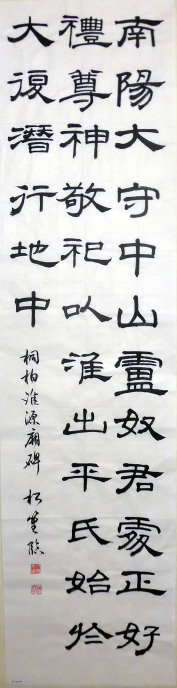 南陽大守中山盧奴君處正好
禮尊神敬祀以淮出平氏始於
大復潛行地中
桐柏淮源廟碑 臨